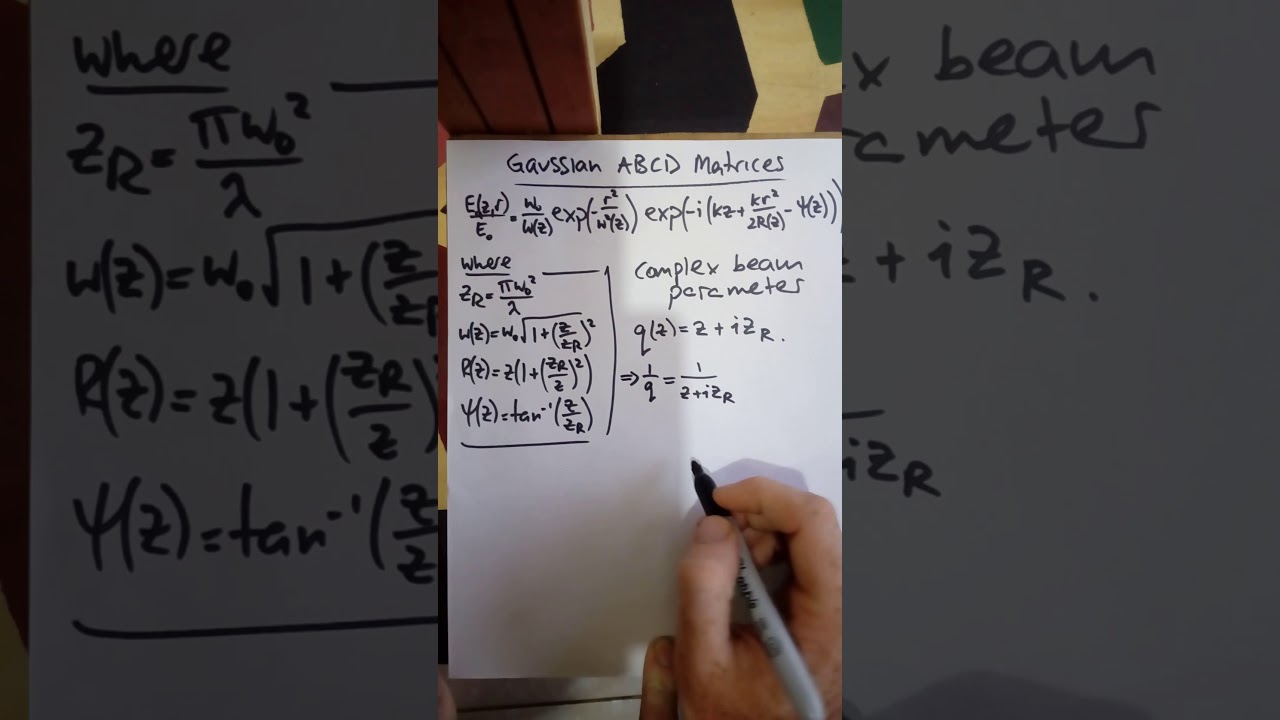 Gaussian ABCD Matrices
E(z,r)/E₀ = w₀/w(z) exp(-r²/w²(z)) exp(-i(kz+kr²/2R(z) - Ψ(z)))
where
z_R = πw₀²/λ
w(z) = w₀√(1+(z/z_R)²)
R(z) = z(1+(z_R/z)²)
Ψ(z) = tan⁻¹(z/z_R)
complex beam
parameter
q(z) = z + iz_R.
⇒ 1/q = 1/(z+iz_R)